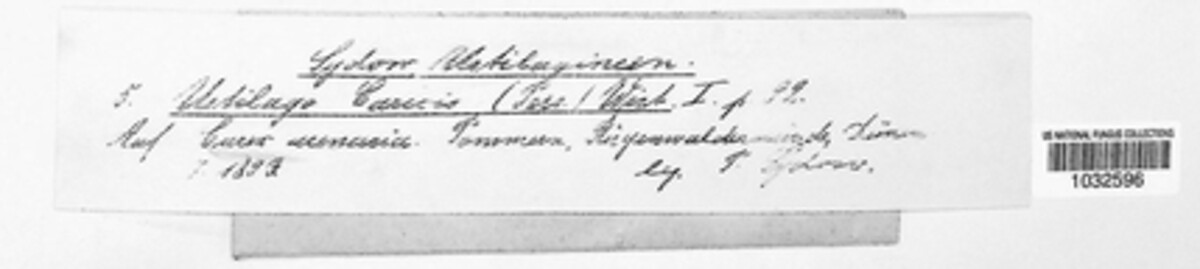 Sydow Ustilagineen.
5. Ustilago Caricis (Pers.) Wint. I. p. 92.
Auf Carex arenaria. Pommern, Rügenwaldermünde, Dünen
7. 1893. leg. P. Sydow.
US NATIONAL FUNGUS COLLECTIONS
1032596